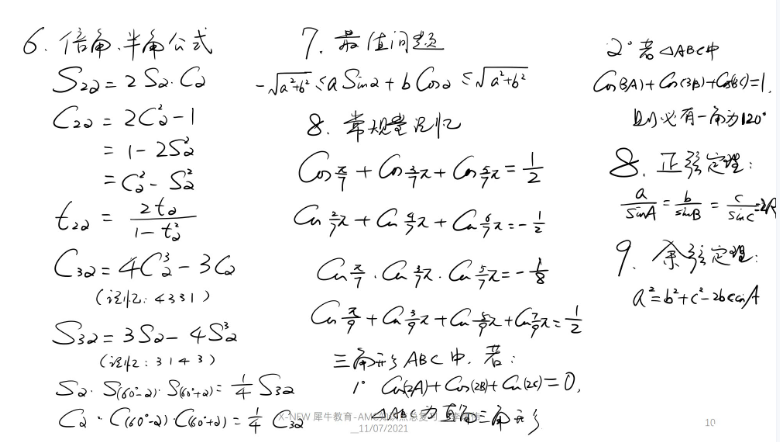 6. 倍角.半角公式
S₂α = 2Sα·Cα
C₂α = 2C²α - 1
= 1 - 2S²α
= C²α - S²α
t₂α = 2tα / (1 - t²α)
C₃α = 4C³α - 3Cα
(记忆: 4331)
S₃α = 3Sα - 4S³α
(记忆: 3143)
Sα · S(60°-α) · S(60°+α) = 1/4 S₃α
Cα · C(60°-α) · C(60°+α) = 1/4 C₃α
7. 最值问题
-√(a²+b²) ≤ a Sinα + b Cosα ≤ √(a²+b²)
8. 常规量记忆
Cos π/7 + Cos 3/7 π + Cos 5/7 π = 1/2
Cos 2/7 π + Cos 4/7 π + Cos 6/7 π = -1/2
Cos π/7 · Cos 3/7 π · Cos 5/7 π = -1/8
Cos π/9 + Cos 3/9 π + Cos 5/9 π + Cos 7/9 π = 1/2
三角形ABC中.若:
1° Cos(2A) + Cos(2B) + Cos(2C) = 0,
△ABC为直角三角形
2° 若△ABC中
Cos(3A) + Cos(3B) + Cos(3C) = 1,
则必有一角为120°
8. 正弦定理:
a/SinA = b/sinB = c/sinC = 2R
9. 余弦定理:
a² = b² + c² - 2bccosA
X-NEW 犀牛教育-AM
11/07/2021
10